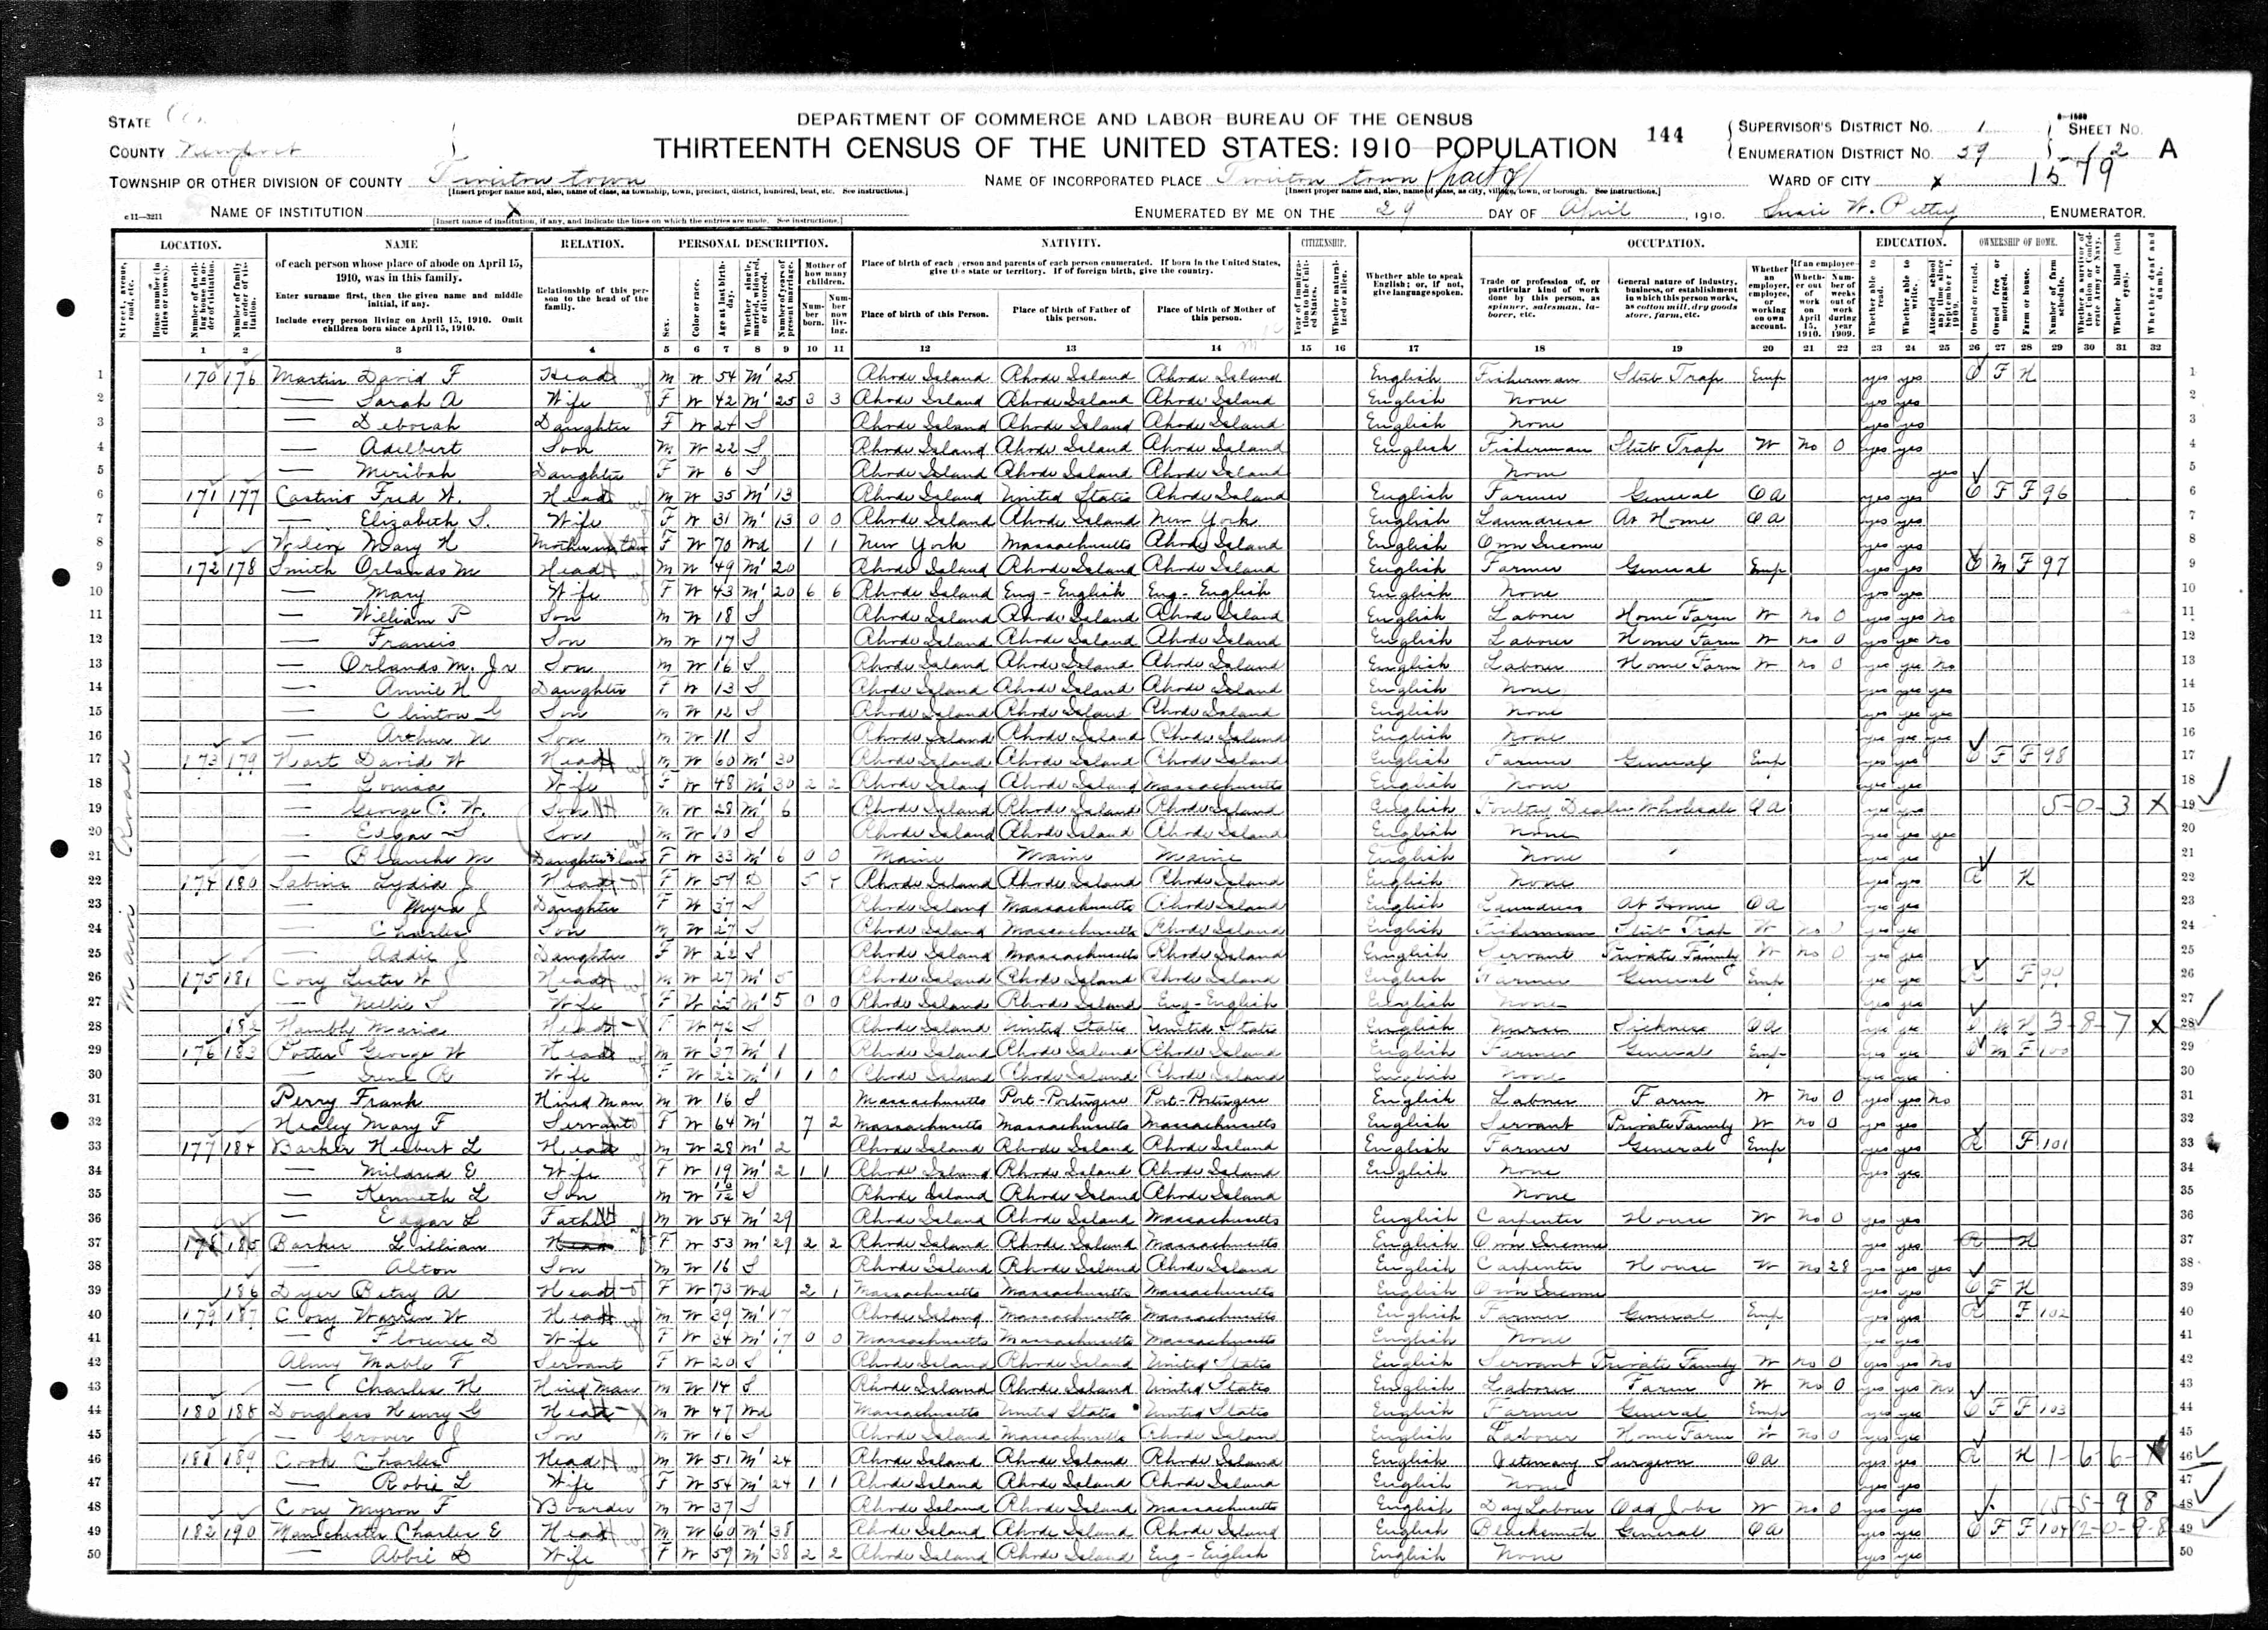 DEPARTMENT OF COMMERCE AND LABOR-BUREAU OF THE CENSUS
THIRTEENTH CENSUS OF THE UNITED STATES: 1910 POPULATION
144
STATE
COUNTY Newport
TOWNSHIP OR OTHER DIVISION OF COUNTY Tiverton town
[Insert proper name and, also, name of class, as township, town, precinct, district, hundred, beat, etc. See instructions.]
NAME OF INSTITUTION X
[Insert name of institution, if any, and indicate the lines on which the entries are made. See instructions.]
NAME OF INCORPORATED PLACE Tiverton town (part of)
[Insert proper name and, also, name of class, as city, village, town, or borough. See instructions.]
ENUMERATED BY ME ON THE 29 DAY OF April, 1910. Susie W. Pettey, ENUMERATOR.
SUPERVISOR'S DISTRICT NO. 1
ENUMERATION DISTRICT NO. 39
SHEET NO. 12 A
WARD OF CITY x
1579
c 11—3211
LOCATION. NAME RELATION. PERSONAL DESCRIPTION. NATIVITY. CITIZENSHIP. OCCUPATION. EDUCATION. OWNERSHIP OF HOME.
of each person whose place of abode on April 15, 1910, was in this family.
Enter surname first, then the given name and middle initial, if any.
Include every person living on April 15, 1910. Omit children born since April 15, 1910.
Relationship of this person to the head of the family.
Place of birth of each person and parents of each person enumerated. If born in the United States, give the state or territory. If of foreign birth, give the country.
Place of birth of this Person. Place of birth of Father of this person. Place of birth of Mother of this person.
Whether able to speak English; or, if not, give language spoken.
Trade or profession of, or particular kind of work done by this person, as spinner, salesman, laborer, etc.
General nature of industry, business, or establishment in which this person works, as cotton mill, dry goods store, farm, etc.
Whether an employer, employee, or working on own account.
1 2 3 4 5 6 7 8 9 10 11 12 13 14 15 16 17 18 19 20 21 22 23 24 25 26 27 28 29 30 31 32
Main Road
1 170 176 Martin David F Head M W 54 M 25 Rhode Island Rhode Island Rhode Island English Fisherman Stub Trap Emp yes yes O F H
2 — Sarah A Wife F W 42 M 25 3 3 Rhode Island Rhode Island Rhode Island English None yes yes
3 — Deborah Daughter F W 24 S Rhode Island Rhode Island Rhode Island English None yes yes
4 — Adelbert Son M W 22 S Rhode Island Rhode Island Rhode Island English Fisherman Stub Trap W No 0 yes yes
5 — Meribah Daughter F W 6 S Rhode Island Rhode Island Rhode Island None yes
6 171 177 Castino Fred W. Head M W 35 M 13 Rhode Island United States Rhode Island English Farmer General OA yes yes O F F 96
7 — Elizabeth S. Wife F W 31 M 13 0 0 Rhode Island Rhode Island New York English Laundress At Home OA yes yes
8 Wilcox Mary H Mother in law F W 70 Wd 1 1 New York Massachusetts Rhode Island English Own Income yes yes
9 172 178 Smith Orlando M Head M W 49 M 20 Rhode Island Rhode Island Rhode Island English Farmer General Emp yes yes O M F 97
10 — Mary Wife F W 43 M 20 6 6 Rhode Island Eng-English Eng-English English None yes yes
11 — William P Son M W 18 S Rhode Island Rhode Island Rhode Island English Laborer Home Farm W No 0 yes yes No
12 — Francis Son M W 17 S Rhode Island Rhode Island Rhode Island English Laborer Home Farm W no 0 yes yes no
13 — Orlando M. Jr Son M W 16 S Rhode Island Rhode Island Rhode Island English Laborer Home Farm W no 0 yes yes No
14 — Annie H Daughter F W 13 S Rhode Island Rhode Island Rhode Island English None yes yes yes
15 — Clinton G Son M W 12 S Rhode Island Rhode Island Rhode Island English None yes yes yes
16 — Arthur N Son M W 11 S Rhode Island Rhode Island Rhode Island English None yes yes yes
17 173 179 Hart David W Head M W 60 M 30 Rhode Island Rhode Island Rhode Island English Farmer General Emp yes yes O F F 98
18 — Louisa Wife F W 48 M 30 2 2 Rhode Island Rhode Island Massachusetts English None yes yes
19 — George C. W. Son M W 28 M 6 Rhode Island Rhode Island Rhode Island English Poultry Dealer Wholesale OA yes yes 5-0-3 X
20 — Edgar S Son M W 10 S Rhode Island Rhode Island Rhode Island English None yes yes yes
21 — Blanche M Daughter in law F W 33 M 6 0 0 Maine Maine Maine English None yes yes
22 174 180 Sabins Lydia J Head F W 59 D 5 4 Rhode Island Rhode Island Rhode Island English None yes yes R H
23 — Myra J Daughter F W 37 S Rhode Island Massachusetts Rhode Island English Laundress At Home OA yes yes
24 — Charles Son M W 27 S Rhode Island Massachusetts Rhode Island English Fisherman Stub Trap W No 0 yes yes
25 — Addie J Daughter F W 22 S Rhode Island Massachusetts Rhode Island English Servant Private Family W No 0 yes yes
26 175 181 Cory Lester W Head M W 27 M 5 Rhode Island Rhode Island Rhode Island English Farmer General Emp yes yes R F 99
27 — Nellie S Wife F W 25 M 5 0 0 Rhode Island Rhode Island Eng-English English None yes yes
28 182 Hambly Maria Head F W 72 S Rhode Island United States United States English Nurse Sickness OA yes yes O M H 3-8-7 X
29 176 183 Potter George W Head M W 37 M 1 Rhode Island Rhode Island Rhode Island English Farmer General Emp yes yes O M F 100
30 — Irene R Wife F W 22 M 1 1 0 Rhode Island Rhode Island Rhode Island English None yes yes
31 Perry Frank Hired Man M W 16 S Massachusetts Port-Portugese Port-Portugese English Laborer Farm W No 0 yes yes No
32 Healey Mary F Servant F W 64 M 7 2 Massachusetts Massachusetts Massachusetts English Servant Private Family W No 0 yes yes
33 177 184 Barker Herbert L Head M W 28 M 2 Rhode Island Rhode Island Rhode Island English Farmer General Emp yes yes R F 101
34 — Mildred E Wife F W 19 M 2 1 1 Rhode Island Rhode Island Rhode Island English None yes yes
35 — Kenneth L Son M W 10/12 S Rhode Island Rhode Island Rhode Island None
36 — Edgar L Father M W 54 M 29 Rhode Island Rhode Island Massachusetts English Carpenter House W No 0 yes yes
37 178 185 Barker Lillian Head F W 53 M 29 2 2 Rhode Island Rhode Island Massachusetts English Own Income yes yes R H
38 — Alton Son M W 16 S Rhode Island Rhode Island Rhode Island English Carpenter House W No 28 yes yes yes
39 186 Dyer Betsy A Head F W 73 Wd 2 1 Massachusetts Massachusetts Massachusetts English Own Income yes yes O F H
40 179 187 Cory Warren W Head M W 39 M 17 Rhode Island Massachusetts Massachusetts English Farmer General Emp yes yes R F 102
41 — Florence D Wife F W 34 M 17 0 0 Massachusetts Massachusetts Massachusetts English None yes yes
42 Almy Mable F Servant F W 20 S Rhode Island Rhode Island United States English Servant Private Family W No 0 yes yes No
43 — Charles H Hired Man M W 14 S Rhode Island Rhode Island United States English Laborer Farm W No 0 yes yes No
44 180 188 Douglass Henry G Head M W 47 Wd Massachusetts United States United States English Farmer General Emp yes yes O F F 103
45 — Grover J Son M W 16 S Rhode Island Massachusetts Rhode Island English Laborer Home Farm W No 0 yes yes
46 181 189 Cook Charles Head M W 51 M 24 Rhode Island Rhode Island Rhode Island English Vetinary Surgeon OA yes yes R H 1-6-6-X
47 — Robie L Wife F W 54 M 24 1 1 Rhode Island Rhode Island Rhode Island English None yes yes
48 Cory Myron F Boarder M W 37 S Rhode Island Rhode Island Massachusetts English Day Labour Odd Jobs W No 0 yes yes 15-5-98
49 182 190 Manchester Charles E Head M W 60 M 38 Rhode Island Rhode Island Rhode Island English Blacksmith General OA yes yes O F F 104 12-0-9-8
50 — Abbie D Wife F W 59 M 38 2 2 Rhode Island Rhode Island Eng-English English None yes yes